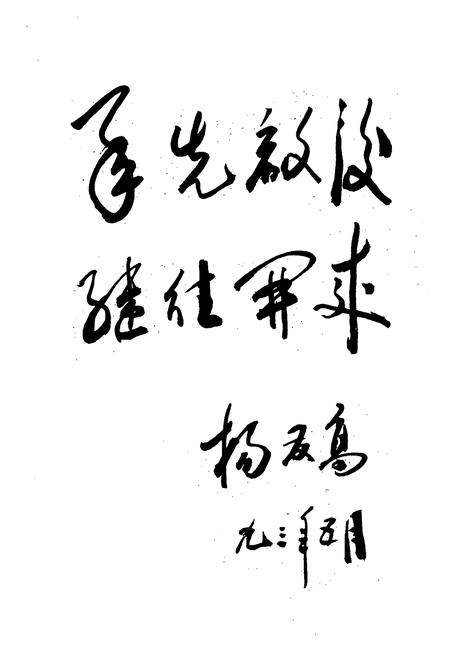 承先啟後
继往開來
杨友高
九三年五月